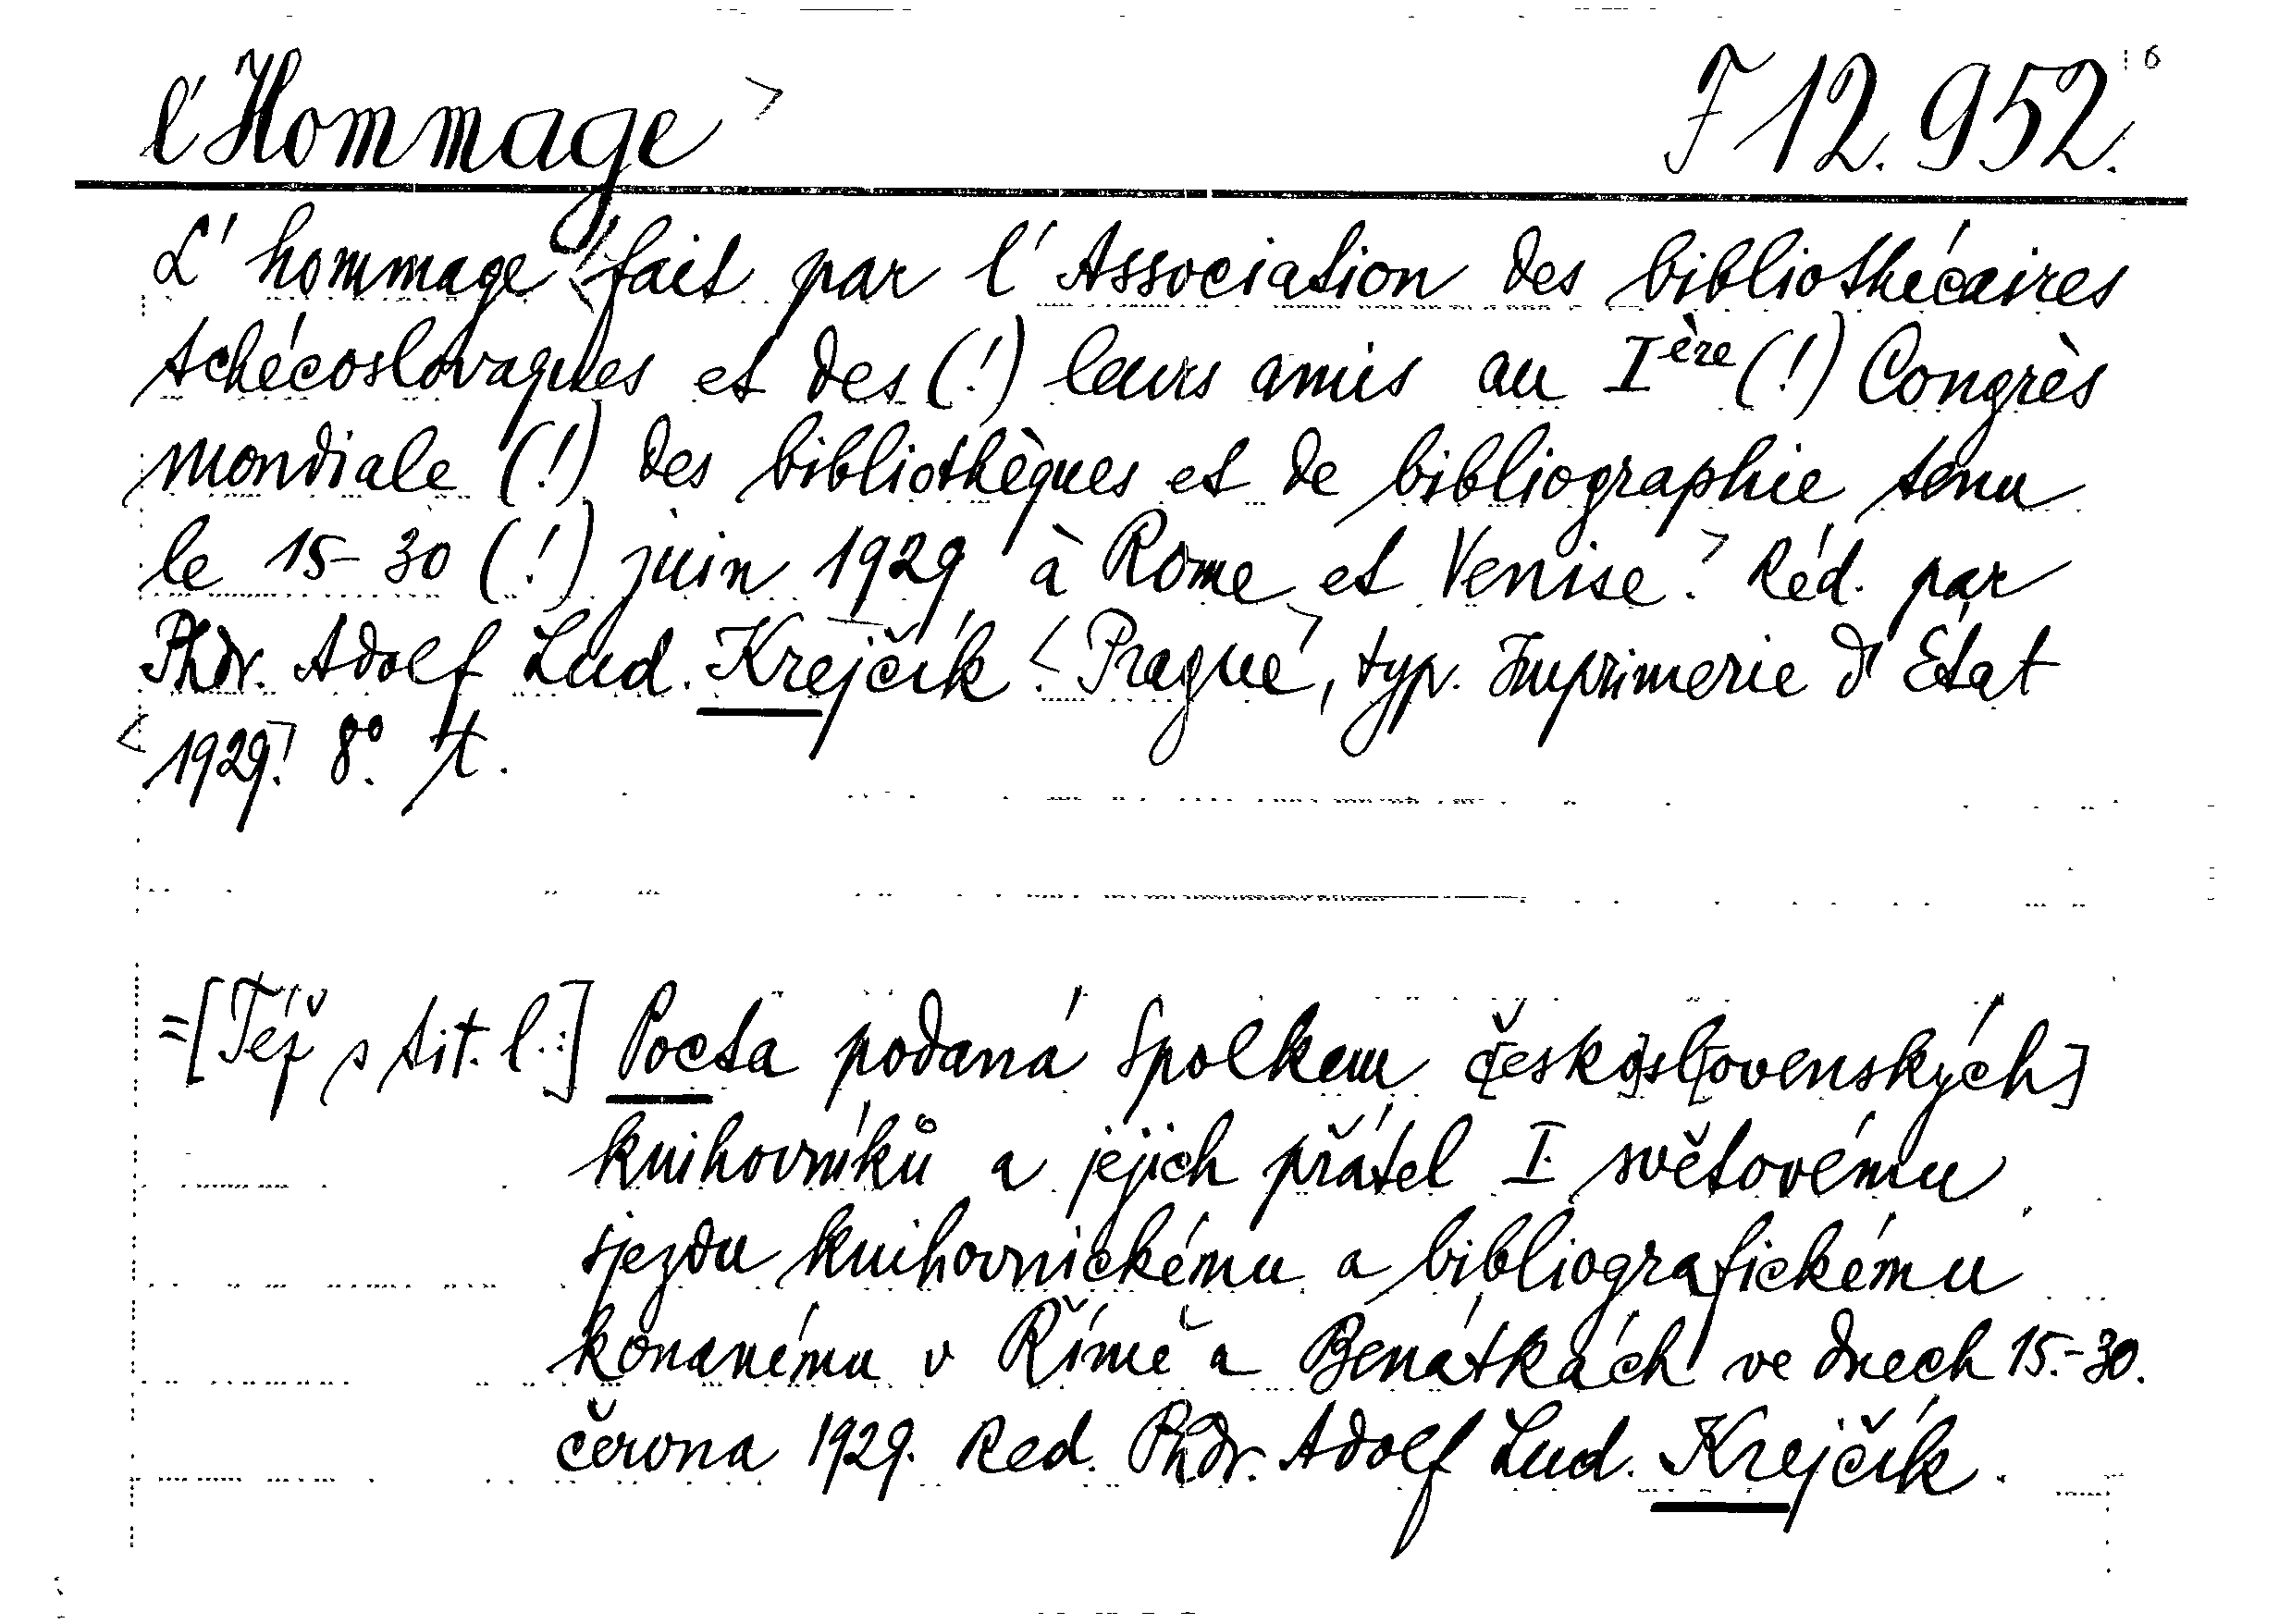 l'Hommage>
F 12.952.
6
L'hommage <fait par l'Association des bibliothécaires
tchécoslovaques et des (!) leurs amis au Ière (!) Congrès
mondiale (!) des bibliothèques et de bibliographie tenu
le 15-30 (!) juin 1929 à Rome et Venise.> Réd. par
Phdr. Adolf Lud. Krejčík. <Prague>, typ. Imprimerie d'État
<1929.> 8°. 4.
=[Též s tit. l.:] Pocta podaná Spolkem č[esko]sl[ovenských]
knihovníků a jejich přátel I. světovému
sjezdu knihovnickému a bibliografickému
konanému v Římě a Benátkách ve dnech 15.-30.
června 1929. Red. Phdr. Adolf Lud. Krejčík.